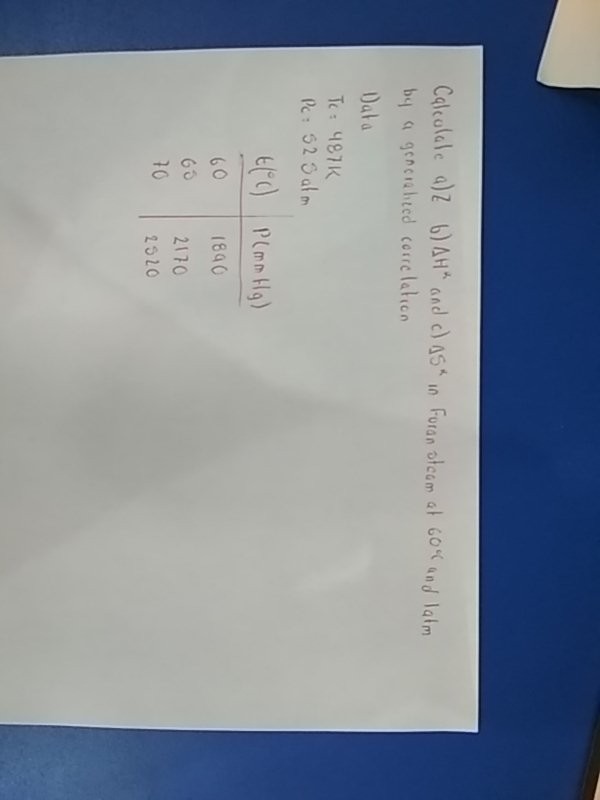 Calculate a)Z b)ΔH* and c)ΔS* in Furan steam at 60°C and 1atm
by a generalized correlation
Data
Tc = 487K
Pc = 52.5 atm
t(°C) P(mmHg)
60 1890
65 2170
70 2520